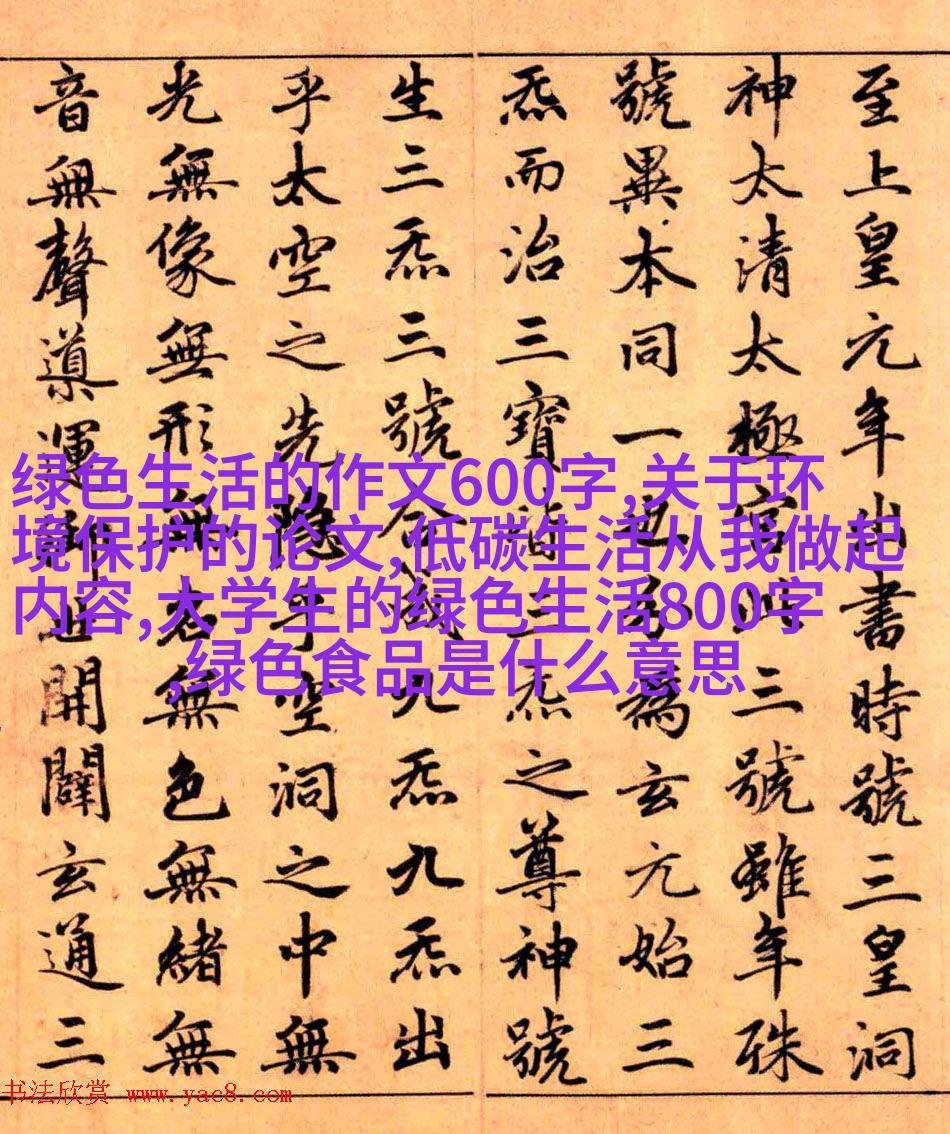 至上皇元年出書時號三皇洞
神太清太極宮此三號雖年殊
號異本同一也分為玄元始三
炁而治三寶皆三炁之尊神號
生三炁三號合成九炁九炁出
乎太空之先隱乎空洞之中無
光無像無形無名無色無緒無
音無聲導運御世開闢玄通三
绿色生活的作文600字,关于环
境保护的论文,低碳生活从我做起
内容,大学生的绿色生活800字
,绿色食品是什么意思
书法欣赏 www.yac8.com